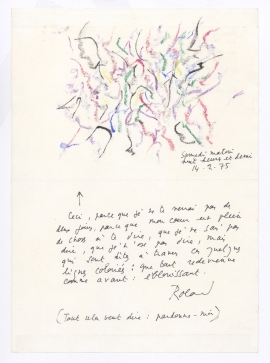 samedi matin
huit heures et demi
14-2-75
Ceci, parce que je ne te verrai pas de
deux jours, parce que mon cœur est plein
de choses à te dire, que je ne sais pas
dire, que je n'ose pas dire, mais
qui sont dites à travers ces quelques
lignes coloriées : que tout redevienne
comme avant : éblouissant.
Roland
(Tout cela veut dire : pardonne-moi)